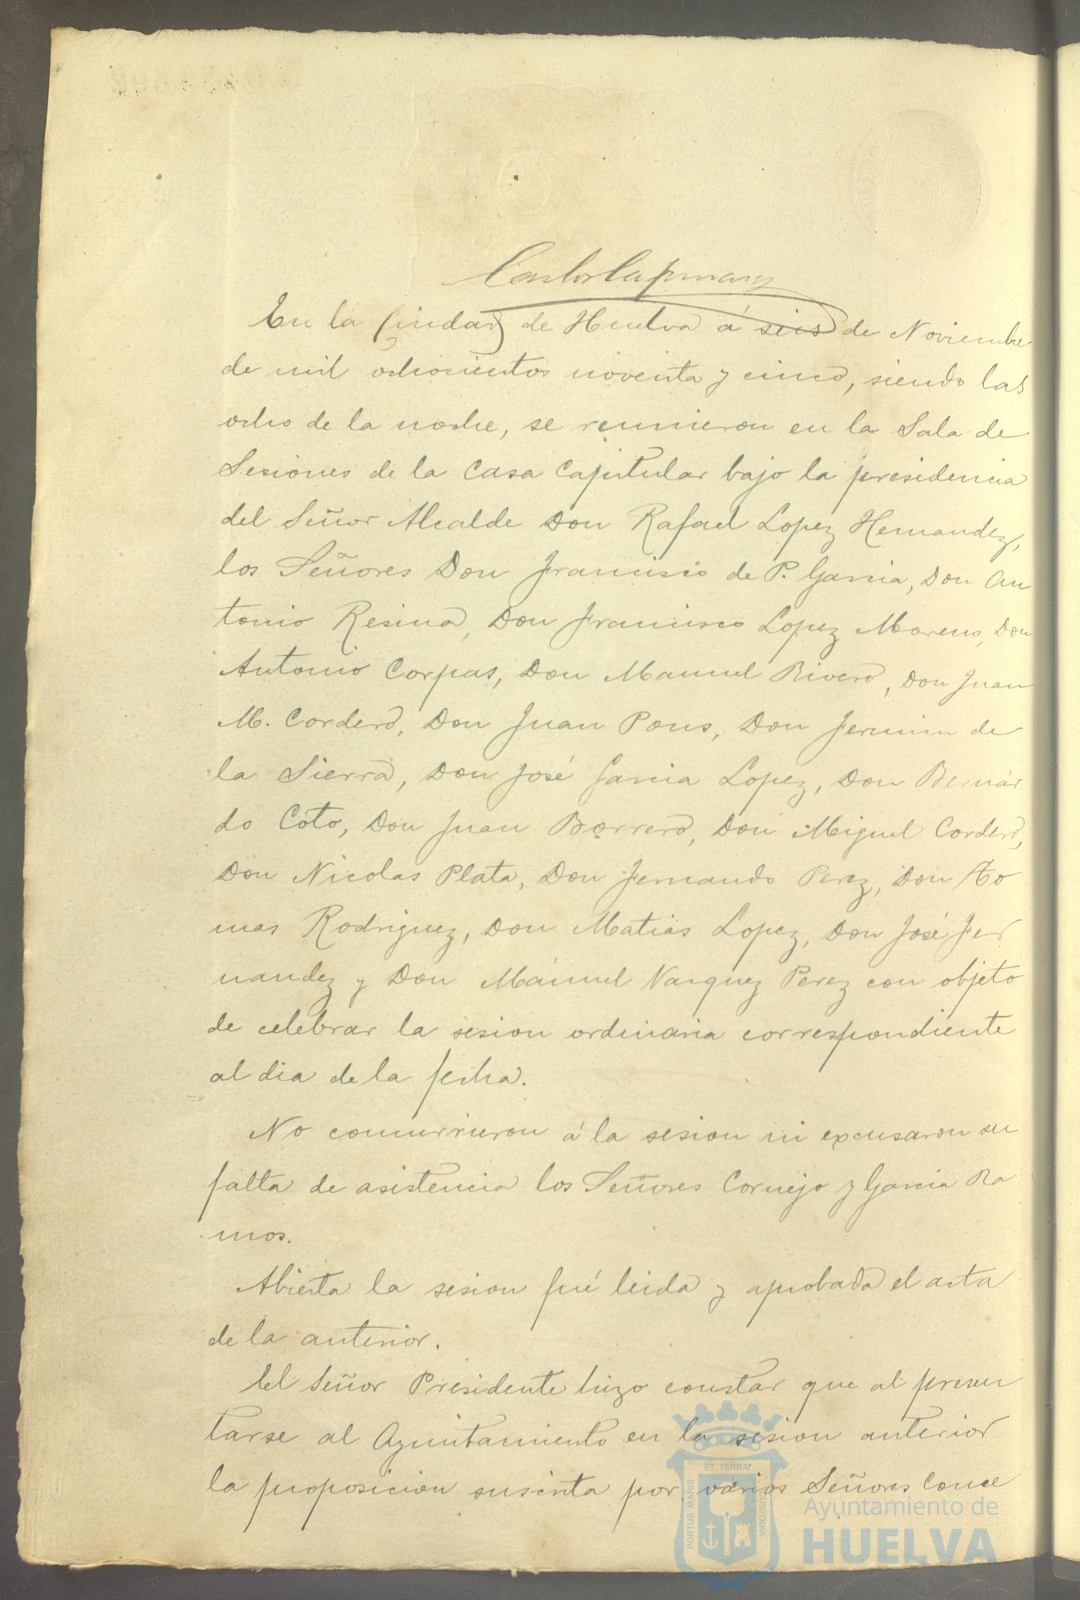 En la Ciudad de Huelva á seis de Noviembre
de mil ochocientos noventa y cinco, siendo las
ocho de la noche, se reunieron en la Sala de
Sesiones de la Casa Capitular bajo la presidencia
del Señor Alcalde Don Rafael Lopez Hernandez,
los Señores Don Francisco de P. Garcia, Don An
tonio Resina, Don Francisco Lopez Moreno, Don
Antonio Corpas, Don Manuel Rivero, Don Juan
M. Cordero, Don Juan Pons, Don Fermin de
la Sierra, Don José Garcia Lopez, Don Bernar
do Coto, Don Juan Borrero, Don Miguel Cordero,
Don Nicolas Plata, Don Fernando Perez, Don To
mas Rodriguez, Don Matias Lopez, Don José Fer
nandez y Don Manuel Vazquez Perez con objeto
de celebrar la sesion ordinaria correspondiente
al dia de la fecha.
No concurrieron á la sesion ni excusaron su
falta de asistencia los Señores Cornejo y Garcia Ra
mos.
Abierta la sesion fué leida y aprobada el acta
de la anterior.
El Señor Presidente hizo constar que al presen
tarse al Ayuntamiento en la sesion anterior
la proposicion suscrita por varios Señores Conce
PORTUS MARIS ET TERRAE CUSTODIA
Ayuntamiento de
HUELVA